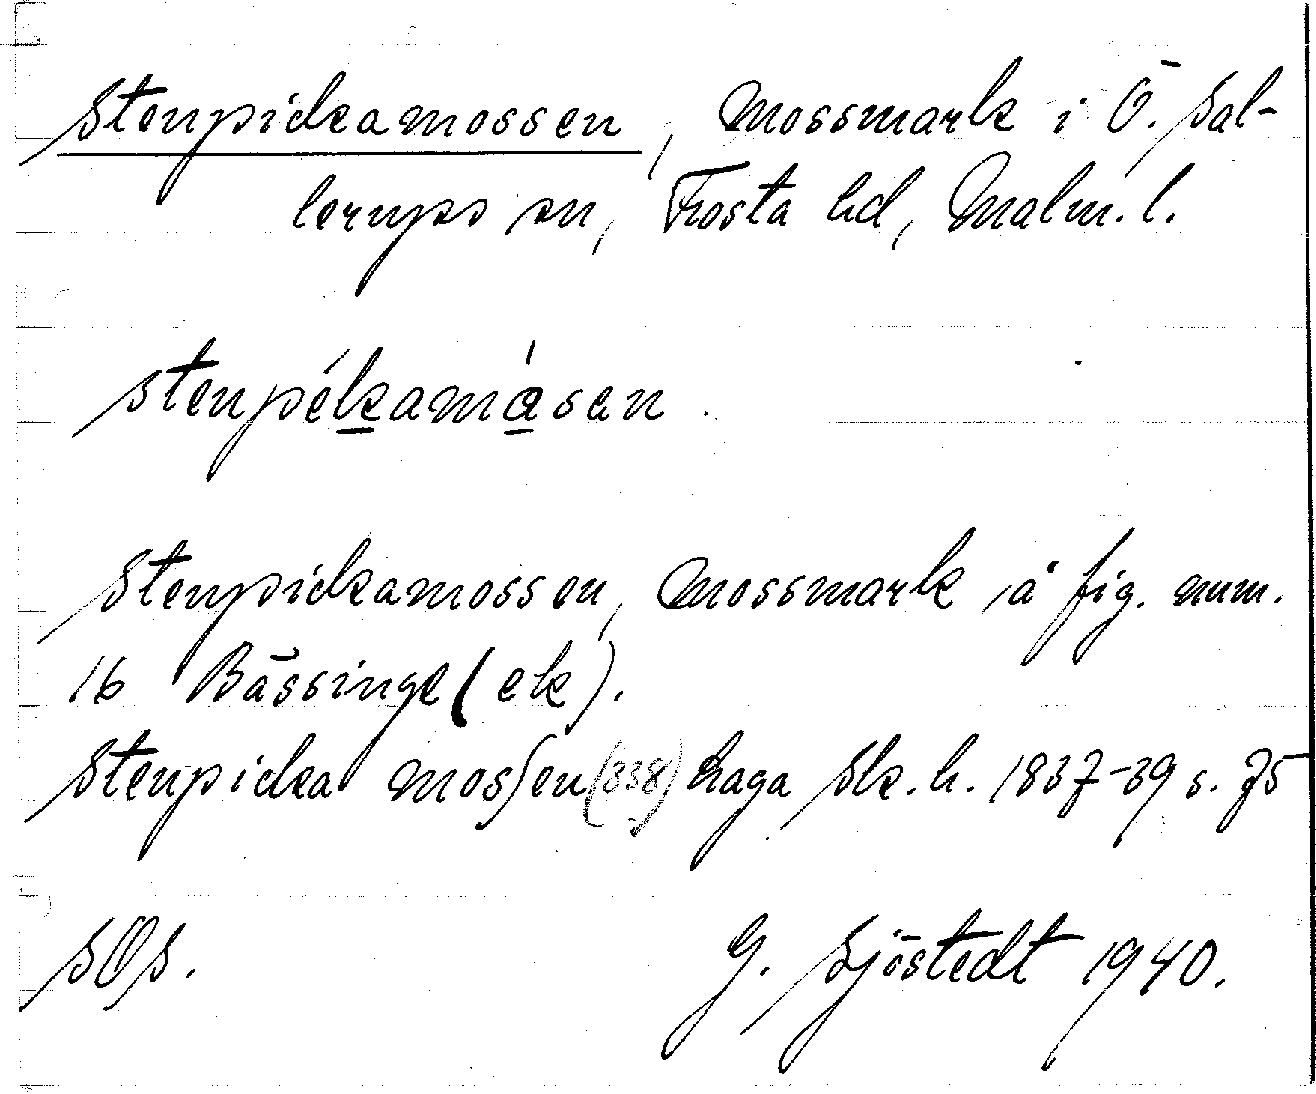 Stenpickamossen, Mossmark i Ö. Sal-
lerups sn, Frosta hd, Malm. l.
stenpékamåsen.
Stenpickamossen, Mossmark å fig. num.
16 Bässinge (ek).
Stenpicka mossen (338) haga Sk. h. 1837-39 s. 75
SOS. G. Sjöstedt 1940.